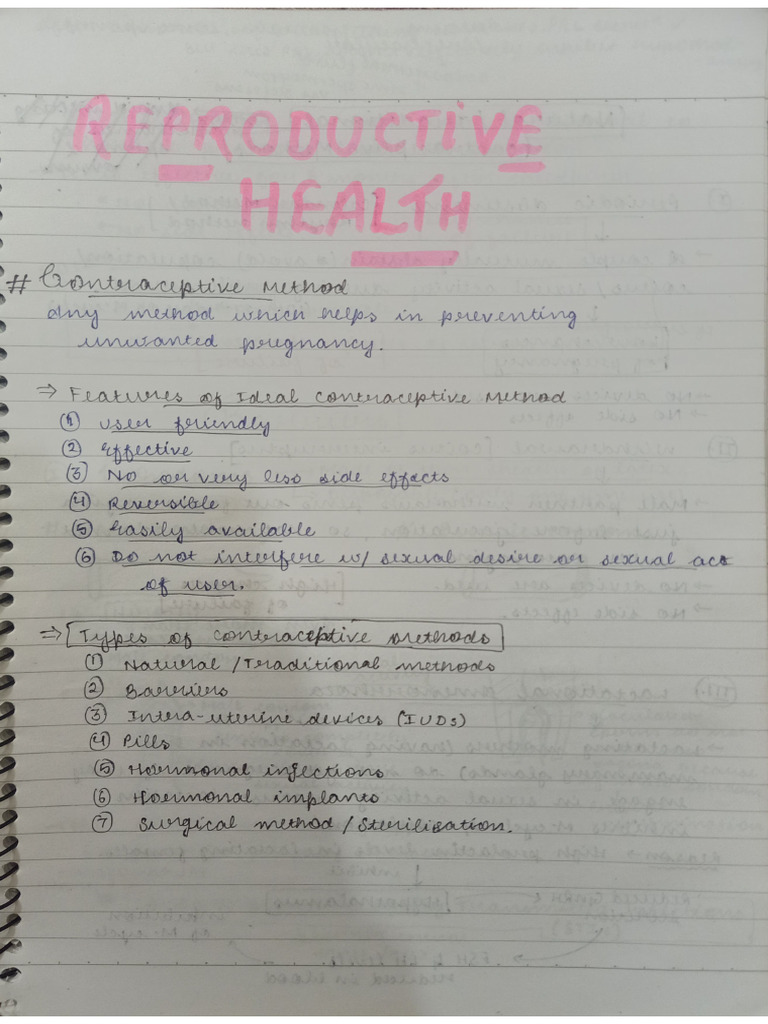 REPRODUCTIVE
HEALTH
# Contraceptive Method
Any method which helps in preventing
unwanted pregnancy.
⇒ Features of Ideal Contraceptive Method
① User friendly
② Effective
③ No or very less side effects
④ Reversible
⑤ Easily available
⑥ Do not interfere w/ sexual desire or sexual act
of user.
⇒ Types of contraceptive methods
① Natural / Traditional methods
② Barriers
③ Intra-uterine devices (IUDs)
④ Pills
⑤ Hormonal injections
⑥ Hormonal implants
⑦ Surgical method / Sterilisation.